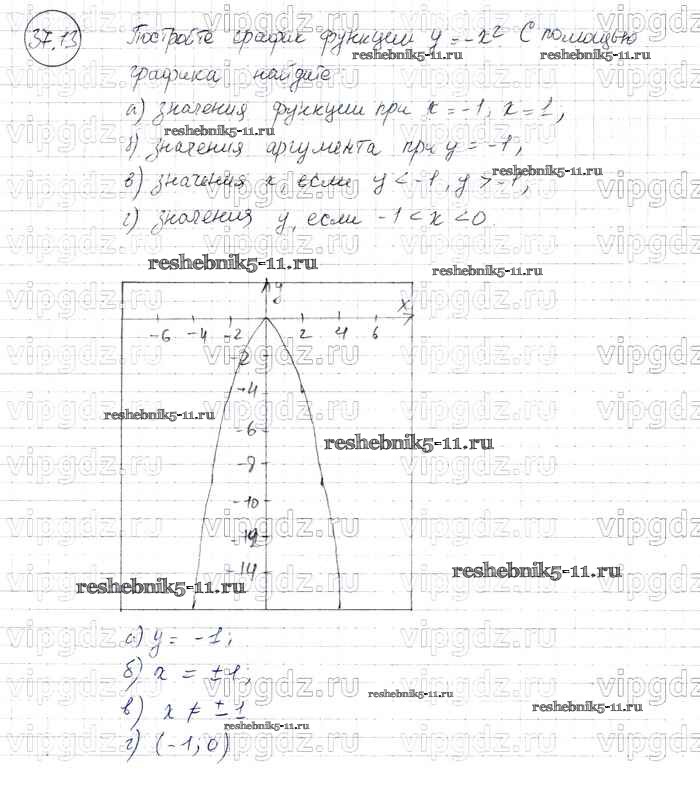 37.13 Постройте график функции y = -x² С помощью
графика найдите
а) значения функции при x = -1, x = 1;
б) значения аргумента при y = -1;
в) значения x, если y < -1, y > -1;
г) значения y, если -1 < x < 0.
reshebnik5-11.ru
vipgdz.ru
y
x
-6 -4 -2 2 4 6
-2
-4
-6
-8
-10
-12
-14
а) y = -1;
б) x = ±1;
в) x ≠ ±1
г) (-1; 0)